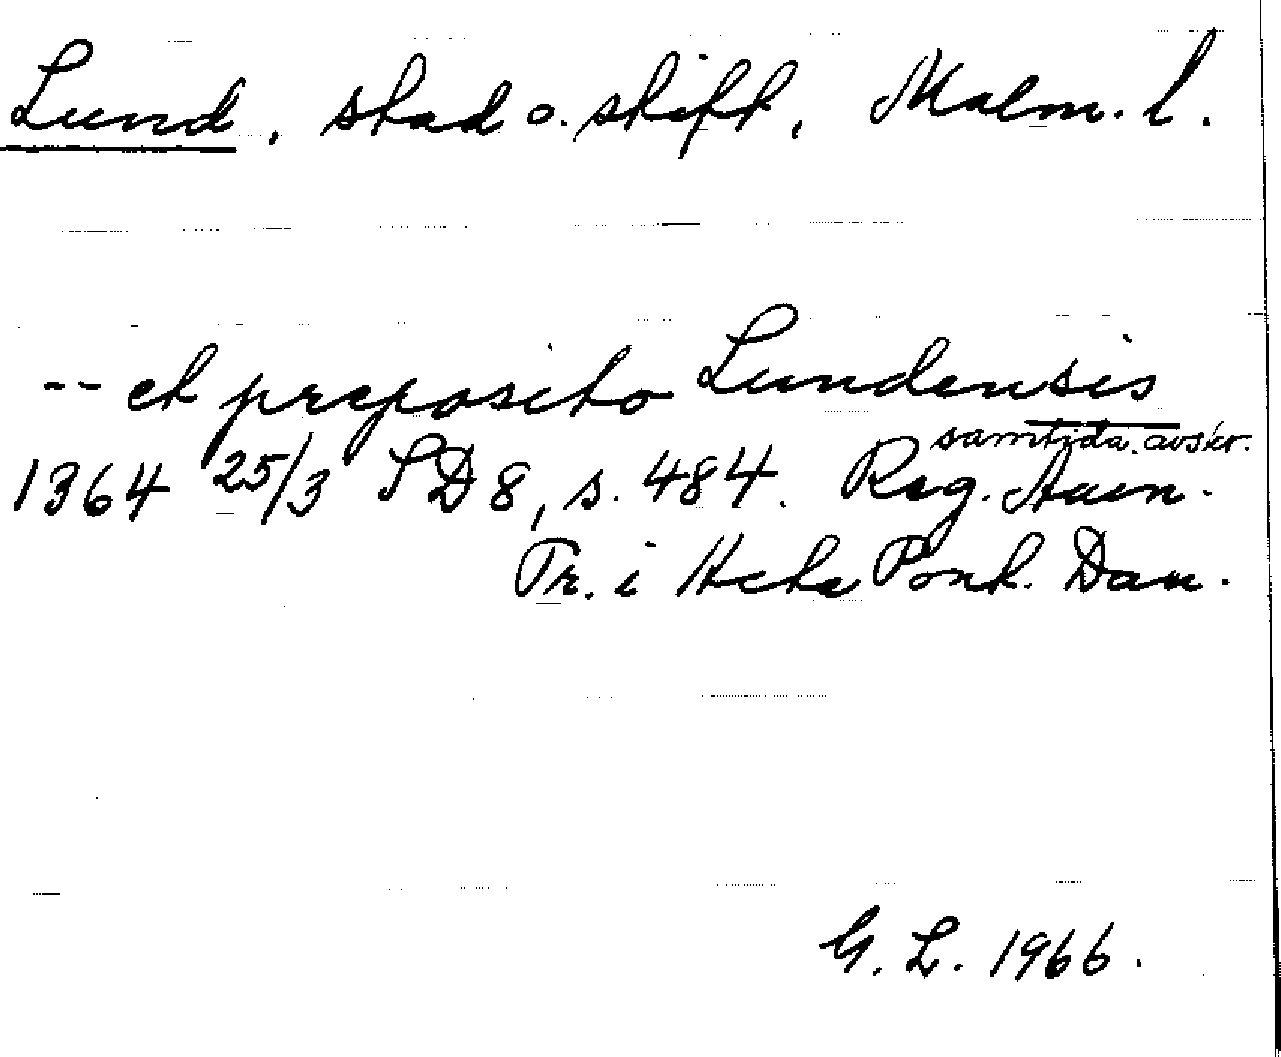 Lund, stad o. stift, Malm. l.
-- et preposito Lundensis
samtida avskr.
1364 25/3 SD 8, s. 484. Reg. Aven.
Tr. i Acta Pont. Dan.
G. L. 1966.